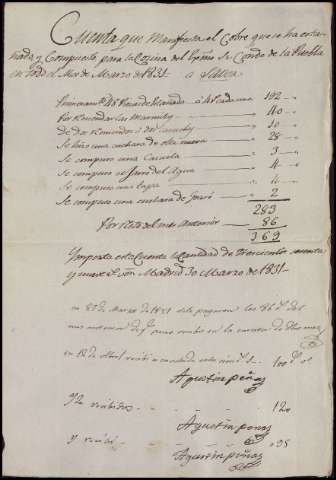 Cuenta que Manifiesta el Cobre que se ha esta-
ñado y Compuesto para la Cocina del Exmo Sr. Conde de la Puebla
en todo el Mes de Marzo de 1831 - a Saber
Primeramte 48 Piezas de Estañado a 4 Cada una 192
Por Remendar las 40
De dos Remiendos 10
Se hizo una cuchara de olla nueva 28
Se compuso una Cazuela 3
Se compuso el Jarro del Agua 4
Se compuso una tapa 4
Se compuso una cuchara de 2
283
Por Resto del mes Anterior 86
369
Importa esta Cuenta la Cantidad de Trescientos sesenta
y nueve Rs von Madrid 30 Marzo de 1831
en 31 de Marzo de 1831 se le pagaron los 86 rs del
mes anterior de qe dio recibo en la cuenta de
en 12 de Abril recibí a cuenta de esta 100
Agustin Peñas
Y he recibido 120
Agustin Peñas
Y recibí
Agustin Peñas